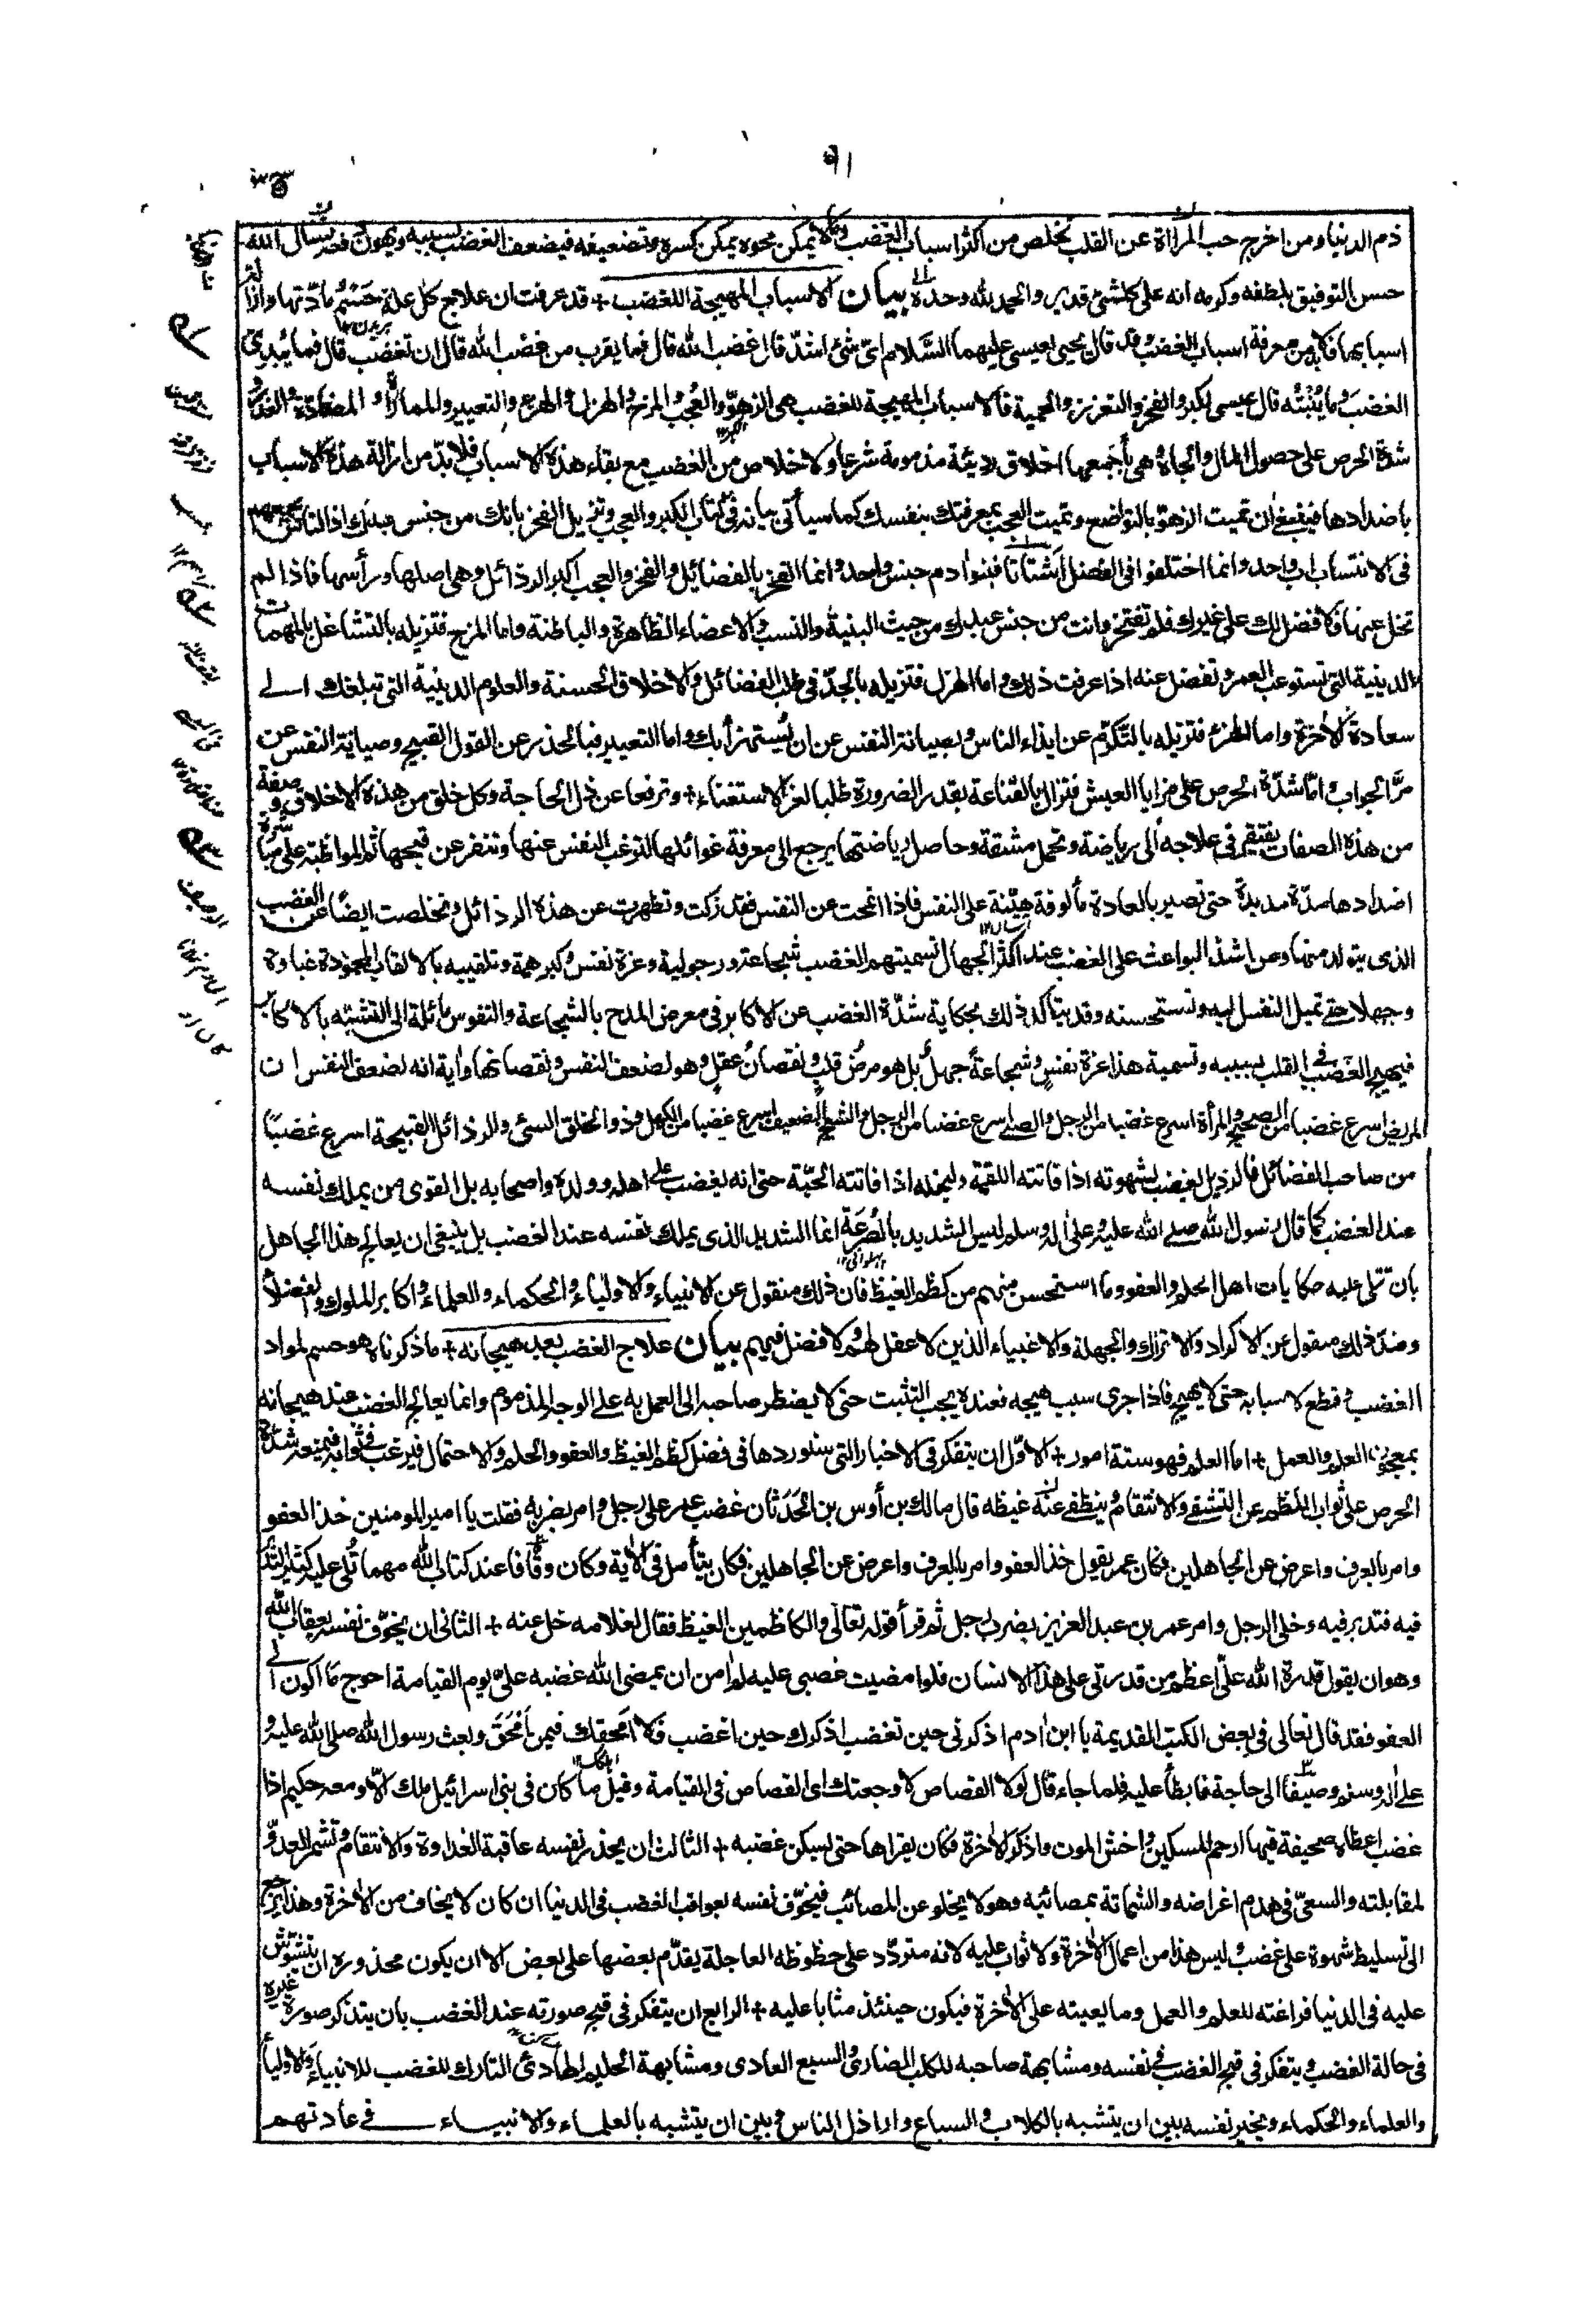 ٥١
ذم الدنيا ومن اخرج حب المراأة عن القلب تخلص من اكثر اسباب الغضب ومالا يمكن محوه يمكن كسره وتضعيفه فيضعف الغضب بسببه ويهون دفعه نسأل الله
حسن التوفيق بلطفه وكرمه انه على كل شئ قدير والحمد لله وحده بيان الاسباب المهيجة للغضب + قد عرفت ان علاج كل علة حسم مادّتها وازالة
اسبابها فلا بد من معرفة اسباب الغضب وقد قال يحيى لعيسى عليهما السَّلام اىّ شئ اشدّ قال غضب الله قال فما يقرب من غضب الله قال ان تغضب قال فما يُبْدِئ
الغضبَ وما يُنْبِتُه قال عيسى الكبر والفخر والتعزز والحمية فالاسباب المهيجة للغضب هى الزهوّ والعُجب والمزح والهزل والهزء والتعيير والمماراة والمضادّة والغدر و
شدة الحرص على حصول المال والجاه وهى بأجمعها اخلاق رديئة مذمومة شرعا ولا خلاص من الغضب مع بقاء هذه الاسباب فلا بدّ من ازالة هذه الاسباب
باضدادها فينبغى ان تميت الزهوّ بالتواضع وتميت العجب بمعرفتك بنفسك كما سيأتى بيانه فى كتاب الكبر والعجب وتزيل الفخر بانك من جنس عبدك اذ الناس يجمعهم
فى الانتساب اب واحد وانما اختلفوا فى الفضل اَشتاتا فبنو اٰدم جنس واحد وانما الفخر بالفضائل والفخر والعجب اكبر الرذائل وهى اصلها ورأسها فاذا لم
تخل عنها فلا فضل لك على غيرك فلم تفتخر وانت من جنس عبدك من حيث البنية والنسب والاعضاء الظاهرة والباطنة واما المزح فتزيله بالتشاغل بالمهمات
الدينية التى تستوعب العمر وتفضل عنه اذا عرفت ذلك واما الهزل فتزيله بالجدّ فى طلب الفضائل والاخلاق الحسنة والعلوم الدينية التى تبلغك الى
سعادة الاٰخرة واما الهزء فتزيله بالتكرّم عن ايذاء الناس وبصيانة النفس عن ان يُستهزأ بك واما التعيير فبالحذر عن القول القبيح وصيانة النفس عن
مرّ الجواب وامّا شدّة الحرص على مزايا العيش فتزال بالقناعة بقدر الضرورة طلبا لعز الاستغناء + وترفعا عن ذل الحاجة وكل خلق من هذه الاخلاق وصفة
من هذه الصفات يفتقر فى علاجه الى رياضة وتحمل مشقة وحاصل رياضتها يرجع الى معرفة غوائلها لترغب النفس عنها وتنفر عن قبحها ثم المواظبة على مباشرة
اضدادها مدّة مديدة حتى تصير بالعادة مألوفة هيّنة على النفس فاذا انمحت عن النفس فقد زكت وتطهرت عن هذه الرذائل وتخلصت ايضًا عن الغضب
الذى يتولد منها ومن اشد البواعث على الغضب عند اكثر الجهال تسميتهم الغضب شجاعة ورجولية وعزة نفس وكبر همة وتلقيبه بالالقاب المحمودة غباوة
وجهلا حتى تميل النفس اليه وتستحسنه وقد يتأكد ذلك بحكاية شدّة الغضب عن الاكابر فى معرض المدح بالشجاعة والنفوس مائلة الى التشبّه بالاكابر
فيهيج الغضب فى القلب بسببه وتسمية هذا عزة نفس وشجاعةً جهلٌ بل هو مرض قلب ونقصان عقل وهو لضعف النفس ونقصانها واٰية انه لضعف النفس ان
المريض اسرع غضبا من الصحيح والمرأة اسرع غضبا من الرجل والصبى اسرع غضبا من الرجل والشيخ الضعيف اسرع غضبا من الكهل وذو الخلق السئ والرذائل القبيحة اسرع غضبًا
من صاحب الفضائل فالرذيل يغضب لشهوته اذا فاتته اللقمة ولبخله اذا فاتته الحبّة حتى انه يغضب على اهله وولده واصحابه بل القوى من يملك نفسه
عند الغضب كما قال رسول الله صلى الله عليه وعلى اٰله وسلم ليس الشديد بالصُرَعَة انما الشديد الذى يملك نفسه عند الغضب بل ينبغى ان يعالج هذا الجاهل
بان تتلى عليه حكايات اهل الحلم والعفو وما استحسن منهم من كظم الغيظ فان ذلك منقول عن الانبياء والاولياء والحكماء والعلماء واكابر الملوك والفضلاء
وضد ذلك منقول عن الاكراد والاتراك والجهلة والاغبياء الذين لا عقل لهم ولا فضل فيهم بيان علاج الغضب بعد هيجانه + ما ذكرناه هو حسم لمواد
الغضب وقطع لاسبابه حتى لا يهيج فاذا جرى سبب هيجه فعنده يجب التثبت حتى لا يضطر صاحبه الى العمل به على الوجه المذموم وانما يعالج الغضب عند هيجانه
بمعجون العلم والعمل + اما العلم فهو ستة امور + الاوّل ان يتفكر فى الاخبار التى سنوردها فى فضل كظم الغيظ والعفو والحلم والاحتمال فيرغب فى ثوابه فيمنعه شدّة
الحرص على ثواب الكظم عن التشفى والانتقام وينطفى عنه غيظه قال مالك بن أوس بن الحَدَثان غضب عمر على رجل وامر بضربه فقلت يا امير المومنين خذ العفو
وامر بالعرف واعرض عن الجاهلين فكان عمر يقول خذ العفو وامر بالعرف واعرض عن الجاهلين فكان يتأمل فى الاٰية وكان وقّافا عند كتاب الله مهما تُلى عليه كثير التدبر
فيه فتدبر فيه وخلى الرجل وامر عمر بن عبد العزيز بضرب رجل ثم قرأ قوله تعالى والكاظمين الغيظ فقال لغلامه خل عنه + الثانى ان يخوّف نفسه بعقاب الله
وهو ان يقول قدرة الله علىّ اعظم من قدرتى على هذا الانسان فلو امضيت غضبى عليه لم اٰمن ان يمضى الله غضبه علىّ يوم القيامة احوج ما اكون الى
العفو فقد قال تعالى فى بعض الكتب القديمة يا ابن اٰدم اذكرنى حين تغضب اذكرك حين اغضب فلا امحقك فيمن اَمْحَقُ وبعث رسول الله صلى الله عليه و
على اٰله وسلم وصيفا الى حاجة فابطأ عليه فلما جاء قال لولا القصاص لاوجعتك اى القصاص فى القيامة وقيل ما كان فى بنى اسرائيل ملك الّا ومعه حكيم اذا
غضب اعطاه صحيفة فيها ارحم المسكين واخش الموت واذكر الاٰخرة فكان يقراها حتى يسكن غضبه + الثالث ان يحذر نفسه عاقبة العداوة والانتقام وتشمر العدوّ
لمقابلته والسعىّ فى هدم اغراضه والشماتة بمصائبه وهو لا يخلو عن المصائب فيخوّف نفسه بعواقب الغضب فى الدنيا ان كان لا يخاف من الاٰخرة وهذا يرجع
الى تسليط شهوة على غضب وليس هذا من اعمال الاٰخرة ولا ثواب عليه لانه متردّد على حظوظه العاجلة يقدّم بعضها على بعض الا ان يكون محذوره ان يتشوّش
عليه فى الدنيا فراغته للعلم والعمل وما يعينه على الاٰخرة فيكون حينئذ مثابا عليه + الرابع ان يتفكر فى قبح صورته عند الغضب بان يتذكر صورة غيره
فى حالة الغضب ويتفكر فى قبح الغضب فى نفسه ومشابهة صاحبه للكلب الضارى والسبع العادى ومشابهة الحليم الهادئ التارك للغضب للانبياء والاولياء
والعلماء والحكماء ويخير نفسه بين ان يتشبه بالكلاب والسباع واراذل الناس وبين ان يتشبه بالعلماء والانبياء فى عادتهم